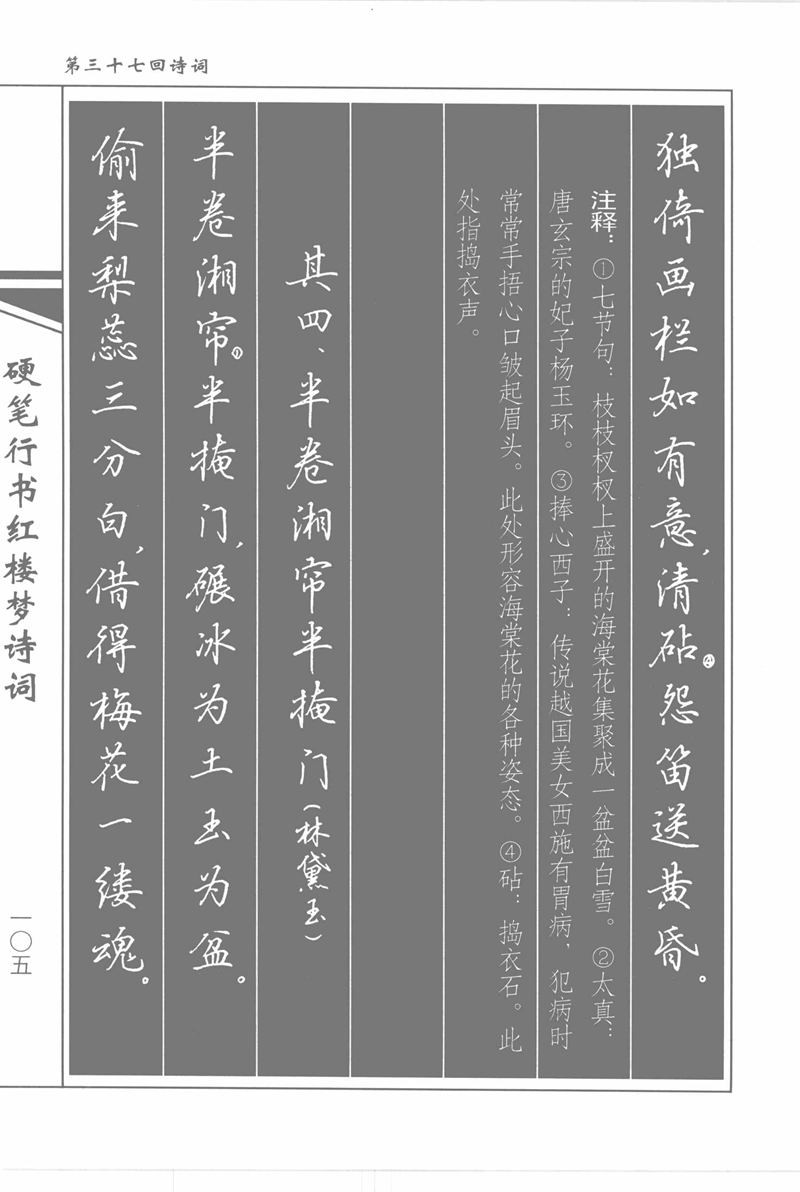 第三十七回诗词
独倚画栏如有意，清砧④怨笛送黄昏。
注释：①七节句：枝枝杈杈上盛开的海棠花集聚成一盆盆白雪。②太真：
唐玄宗的妃子杨玉环。③捧心西子：传说越国美女西施有胃病，犯病时
常常手捂心口皱起眉头。此处形容海棠花的各种姿态。④砧：捣衣石。此
处指捣衣声。
其四、半卷湘帘半掩门（林黛玉）
半卷湘帘①半掩门，碾冰为土玉为盆。
偷来梨蕊三分白，借得梅花一缕魂。
硬笔行书红楼梦诗词
一〇五